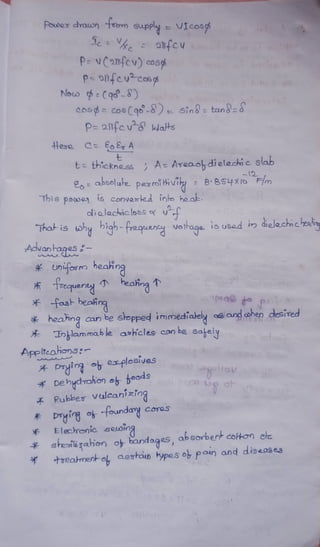 Power drawn from supply = VIcosϕ
Ic = V/Xc = 2πfCV
P = V(2πfcv) cosϕ
P = 2πfcv²cosϕ
Now ϕ = (90-δ)
cosϕ = cos(90-δ) = sinδ = tanδ = δ
P = 2πfcv²δ Watts
Here C = ε₀εᵣA/t
t = thickness ; A = Area of dielectric slab
ε₀ = absolute permittivity = 8.854x10⁻¹² F/m
This power is converted into heat.
dielectricloss ∝ v²f
That is why high-frequency voltage is used in dielectric heating
Advantages :-
* Uniform heating
* frequency ↑ heating ↑
* fast heating
* heating can be stopped immediately as and when desired
* Inflammable articles can be safely
Applications:-
* Drying of explosives
* Dehydration of foods
* Rubber vulcanizing
* Drying of foundary cores
* Electronic sewing
* sterilization of bandages, absorbent cotton etc
* treatment of certain types of pain and diseases